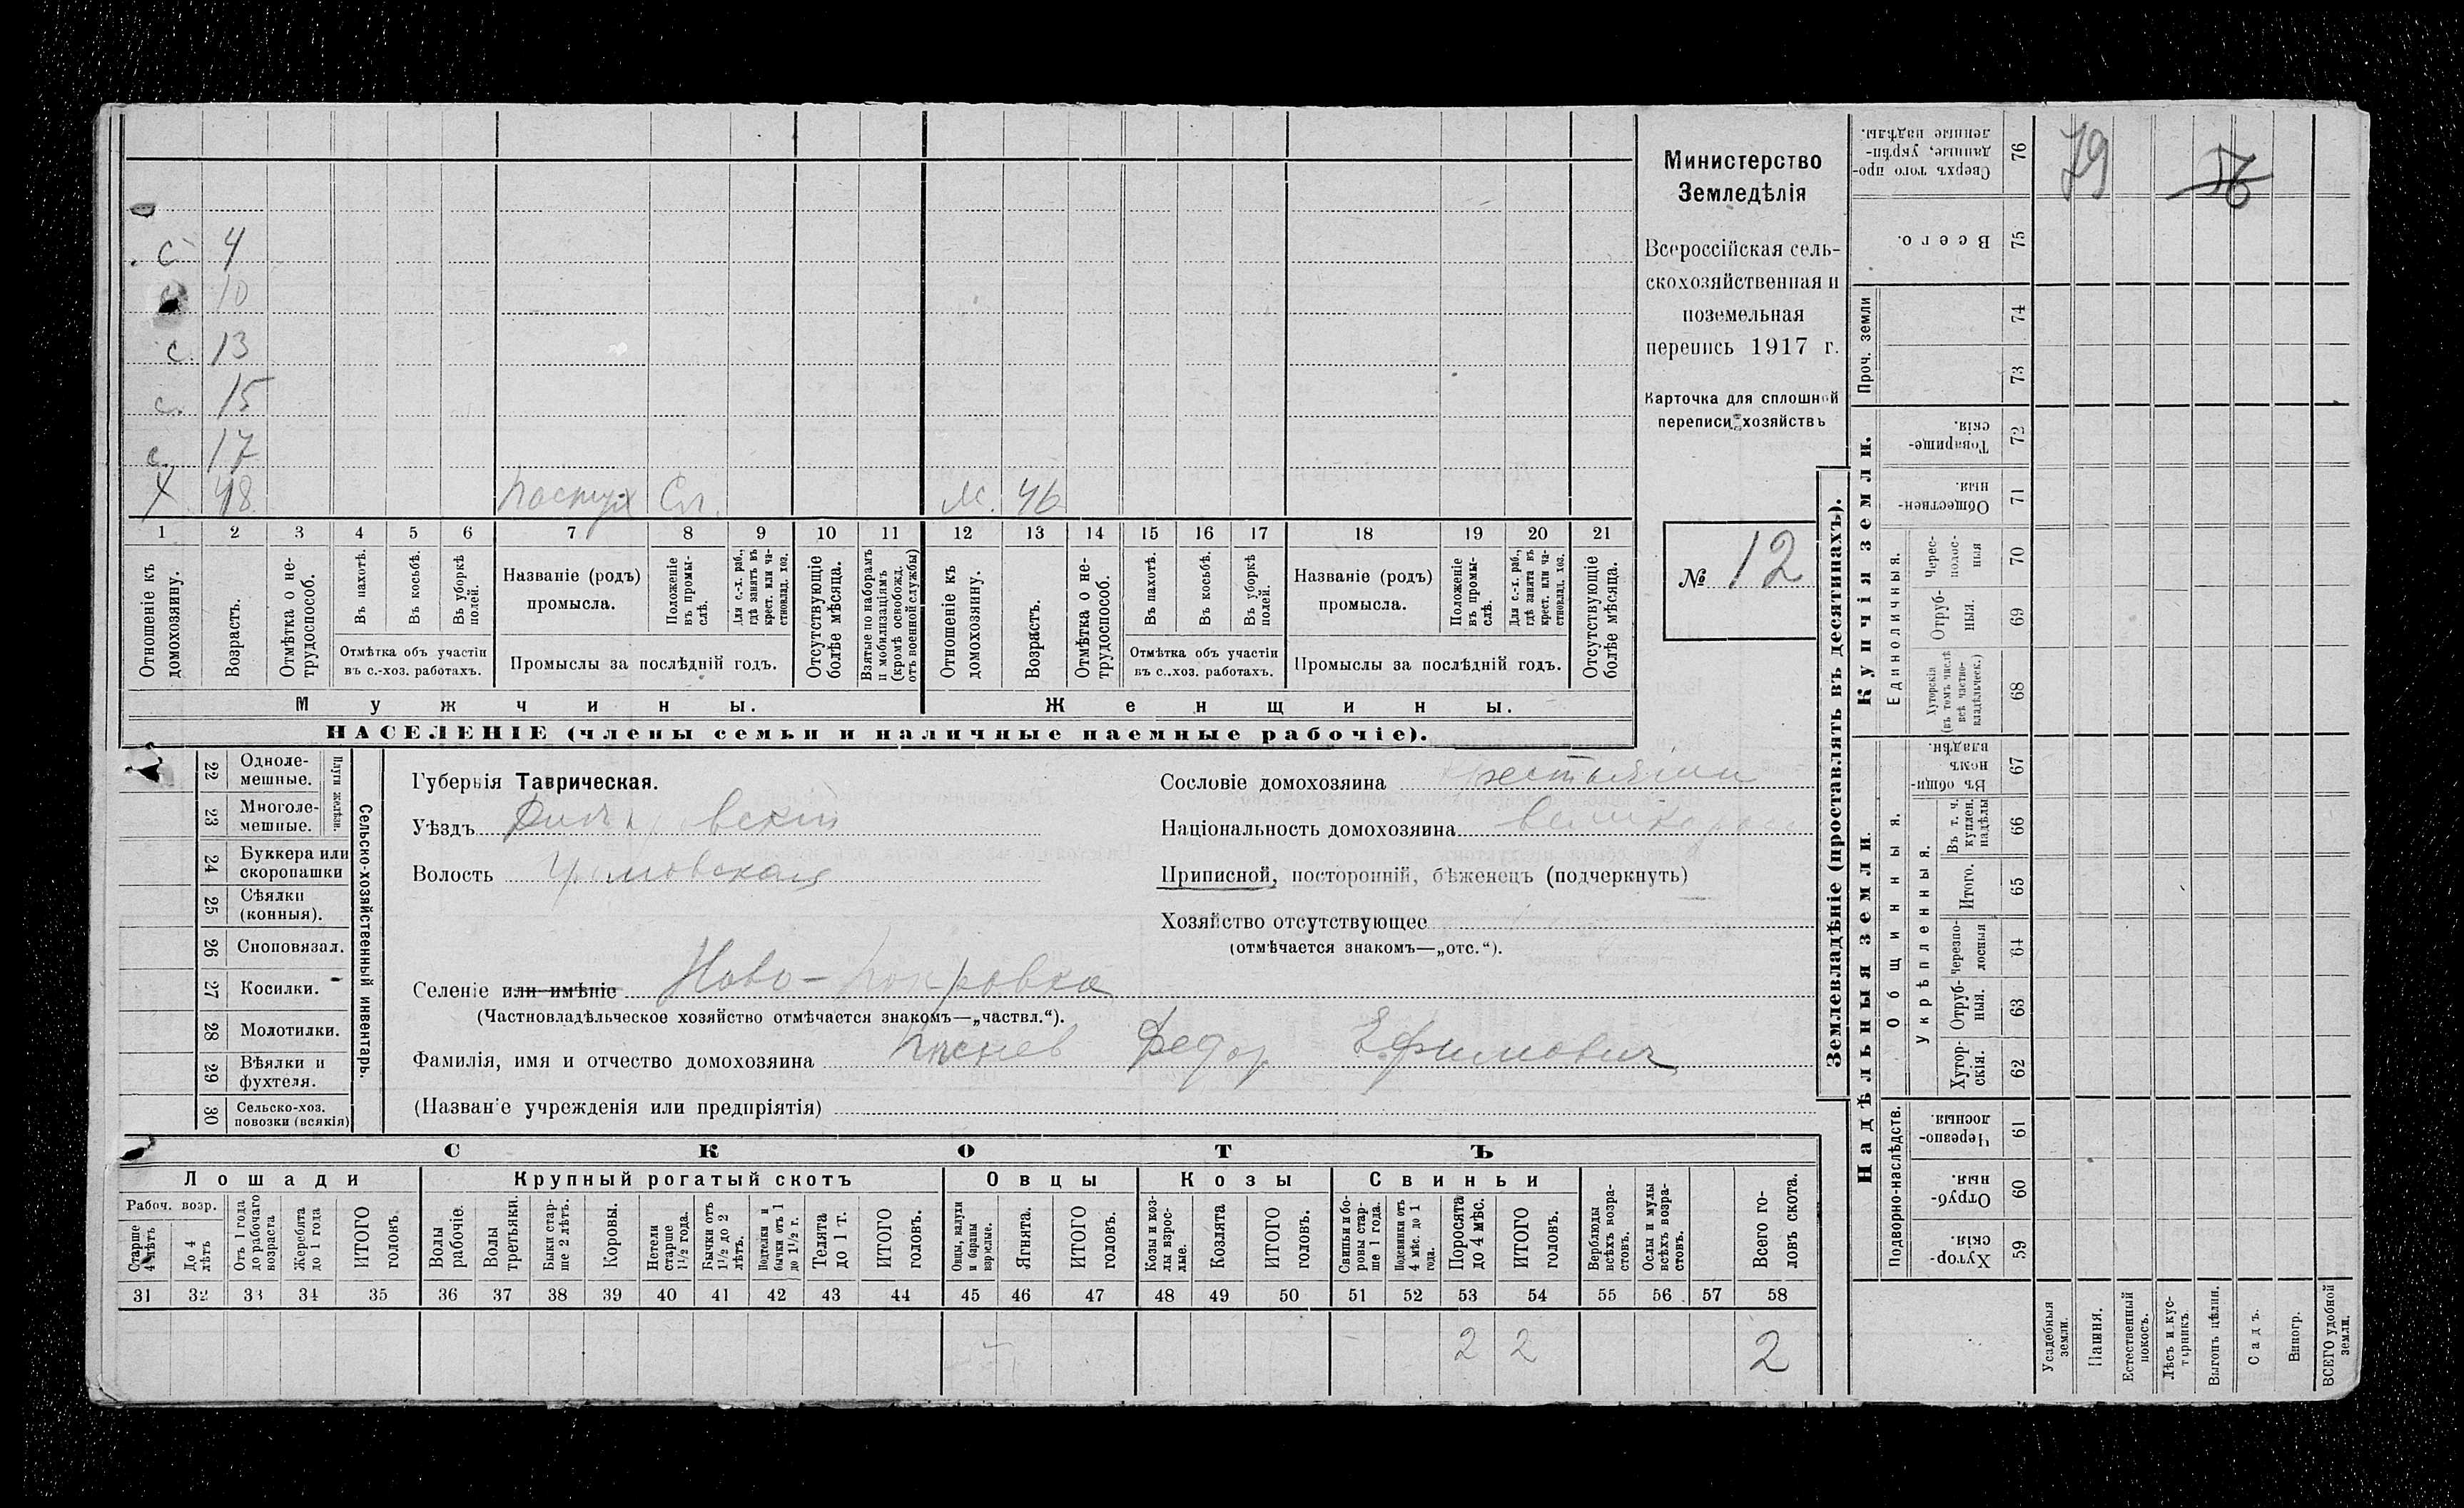 с 4
10
с. 13
с. 15
с. 17
Х 48 пастух Сл. М. 46
1 2 3 4 5 6 7 8 9 10 11 12 13 14 15 16 17 18 19 20 21
Отношеніе къ домохозяину.
Возрастъ.
Отмѣтка о не-трудоспособ.
Въ пахотѣ.
Въ косьбѣ.
Въ уборкѣ полей.
Отмѣтка объ участіи въ с.-хоз. работахъ.
Названіе (родъ) промысла.
Положеніе въ промы-слѣ.
Для с.-х. раб., гдѣ занятъ въ крест. или ча-стновлад. хоз.
Промыслы за послѣдній годъ.
Отсутствующіе болѣе мѣсяца.
Взятые по наборамъ и мобилизаціямъ (кромѣ освобожд. отъ военной службы)
Отношеніе къ домохозяину.
Возрастъ.
Отмѣтка о не-трудоспособ.
Въ пахотѣ.
Въ косьбѣ.
Въ уборкѣ полей.
Отмѣтка объ участіи въ с.-хоз. работахъ.
Названіе (родъ) промысла.
Положеніе въ промы-слѣ.
Для с.-х. раб., гдѣ занята въ крест. или ча-стновлад. хоз.
Промыслы за послѣдній годъ.
Отсутствующіе болѣе мѣсяца.
Мужчины. Женщины.
НАСЕЛЕНІЕ (члены семьи и наличные наемные рабочіе).
Министерство
Земледѣлія
Всероссійская сель-
скохозяйственная и
поземельная
перепись 1917 г.
Карточка для сплошной
переписи хозяйствъ
№ 12
22 Одноле-мешные.
23 Многоле-мешные.
Плуги желѣзн.
24 Буккера или скоропашки
25 Сѣялки (конныя).
26 Сноповязал.
27 Косилки.
28 Молотилки.
29 Вѣялки и фухтеля.
30 Сельско-хоз. повозки (всякія)
Сельско-хозяйственный инвентарь.
Губернія Таврическая.
Уѣздъ
Волость
Селеніе или имѣніе Ново-Покровка
(Частновладѣльческое хозяйство отмѣчается знакомъ—„частвл.“).
Фамилія, имя и отчество домохозяина Федор Ефимович
(Названіе учрежденія или предпріятія)
Сословіе домохозяина крестьянин
Національность домохозяина великоросс
Приписной, посторонній, бѣженецъ (подчеркнуть)
Хозяйство отсутствующее
(отмѣчается знакомъ—„отс.“).
СКОТЪ
Лошади Крупный рогатый скотъ Овцы Козы Свиньи
Рабоч. возр.
Старше 4 лѣтъ
До 4 лѣтъ
Отъ 1 года до рабочаго возраста
Жеребята до 1 года
ИТОГО головъ.
Волы рабочіе.
Волы третьяки.
Быки стар-ше 2 лѣтъ.
Коровы.
Нетели старше 1½ года.
Бычки отъ 1½ до 2 лѣтъ.
Подтелки и бычки отъ 1 до 1½ г.
Телята до 1 г.
ИТОГО головъ.
Овцы, валухи и бараны взрослые.
Ягнята.
ИТОГО головъ.
Козы и коз-лы взрос-лые.
Козлята
ИТОГО головъ.
Свиньи и бо-ровы стар-ше 1 года.
Подсвинки отъ 4 мѣс. до 1 года.
Поросята до 4 мѣс.
ИТОГО головъ.
Верблюды всѣхъ возра-стовъ.
Ослы и мулы всѣхъ возра-стовъ.
Всего го-ловъ скота.
31 32 33 34 35 36 37 38 39 40 41 42 43 44 45 46 47 48 49 50 51 52 53 54 55 56 57 58
2 2 2
Землевладѣніе (проставлять въ десятинахъ).
Купчія земли.
Надѣльныя земли.
76 Сверхъ того про-данные, укрѣп-ленные надѣлы.
79
75 Всего.
Проч. земли
74
73
72 Товарище-скія.
71 Обществен-ныя.
Единоличныя.
70 Черес-полос-ныя
69 Отруб-ныя.
68 Хуторскія (въ томъ числѣ всѣ частно-владѣльческ.)
Общинныя.
67 Въ общин-номъ владѣн.
Укрѣпленныя.
66 Въ т. ч. куплен. надѣлы
65 Итого.
64 Черезпо-лосныя
63 Отруб-ныя.
62 Хутор-скія.
Подворно-наслѣдств.
61 Черезпо-лосныя
60 Отруб-ныя.
59 Хутор-скія.
Усадебныя земли.
Пашня.
Естественный покосъ.
Лѣсъ и кус-тарникъ.
Выгонъ цѣлин.
Садъ.
Виногр.
ВСЕГО удобной земли.